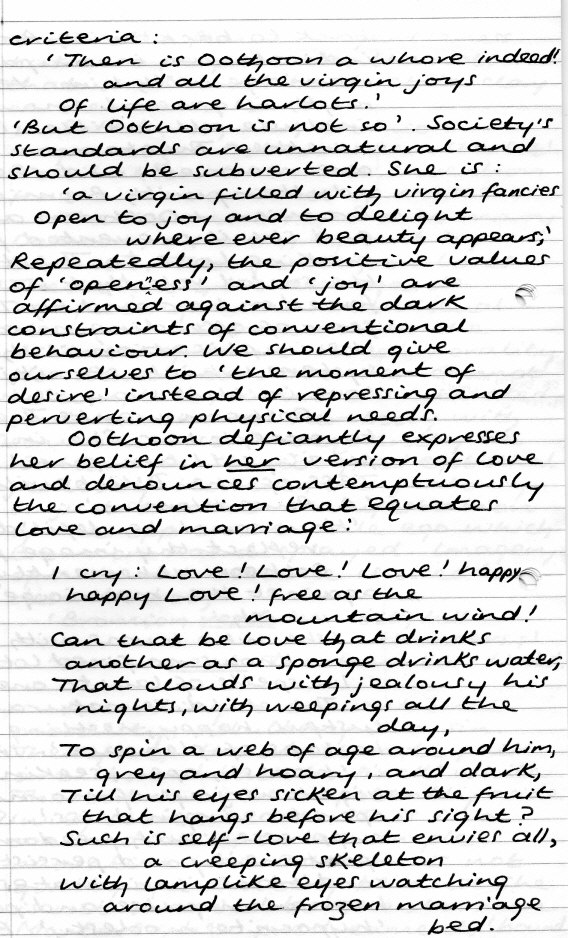 criteria :
'Then is Oothoon a whore indeed!
and all the virgin joys
Of life are harlots.'
'But Oothoon is not so'. Society's
standards are unnatural and
should be subverted. She is :
'a virgin filled with virgin fancies
Open to joy and to delight
where ever beauty appears;'
Repeatedly, the positive values
of 'openess' and 'joy' are
affirmed against the dark
constraints of conventional
behaviour. We should give
ourselves to 'the moment of
desire' instead of repressing and
perverting physical needs.
Oothoon defiantly expresses
her belief in her version of love
and denounces contemptuously
the convention that equates
love and marriage :
I cry : Love! Love! Love! happy
happy Love! free as the
mountain wind!
Can that be love that drinks
another as a sponge drinks water,
That clouds with jealousy his
nights, with weepings all the
day,
To spin a web of age around him,
grey and hoary, and dark,
Till his eyes sicken at the fruit
that hangs before his sight?
Such is self-love that envies all,
a creeping skeleton
With lamplike eyes watching
around the frozen marriage
bed.